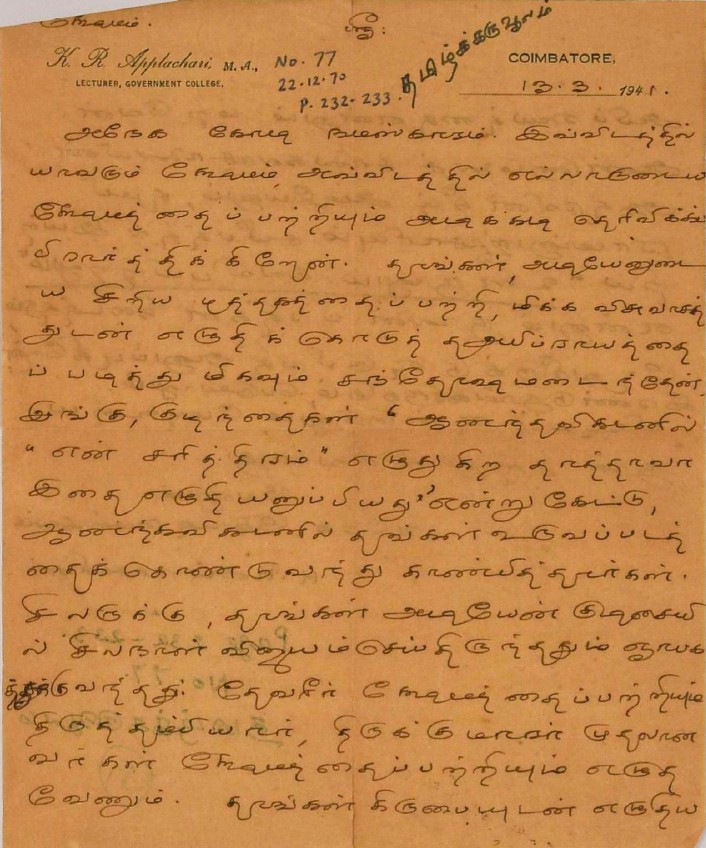 க்ஷேமம்.
K. R. Applachari, M. A.,
LECTURER, GOVERNMENT COLLEGE.
No. 77
22.12.70
P. 232-233.
தமிழ்க்கருவூலம்
COIMBATORE,
13.3. 1941.
அநேக கோடி நமஸ்காரம். இவ்விடத்தில்
யாவரும் க்ஷேமம், அவ்விடத்தில் எல்லாருடைய
க்ஷேமத்தைப் பற்றியும் அடிக்கடி தெரிவிக்க
பிரார்த்திக்கிறேன். தாங்கள், அடியேனுடை
ய சிறிய புத்தகத்தைப்பற்றி, மிக்க விசுவாசத்
துடன் எழுதிக் கொடுத்த அபிப்ராயத்தை
ப் படித்து மிகவும் சந்தோஷமடைந்தேன்.
இங்கு, குழந்தைகள் "ஆனந்தவிகடனில்
"என் சரித்திரம்" எழுதுகிற தாத்தாவா
இதை எழுதியனுப்பியது" என்று கேட்டு,
ஆனந்தவிகடனில் தங்கள் உருவப்படத்
தைக் கொண்டுவந்து காண்பித்தார்கள்.
சிலருக்கு, தாங்கள் அடியேன் குடிசையி
ல் சிலநாள் விஜயம்செய்திருந்ததும் ஞாபக
த்துக்கு வந்தது. தேவரீர் க்ஷேமத்தைப்பற்றியும்
திருத்தம்பியார், திருக்குமாரர் முதலான
வர்கள் க்ஷேமத்தைப்பற்றியும் எழுத
வேணும். தாங்கள் கிருபையுடன் எழுதிய